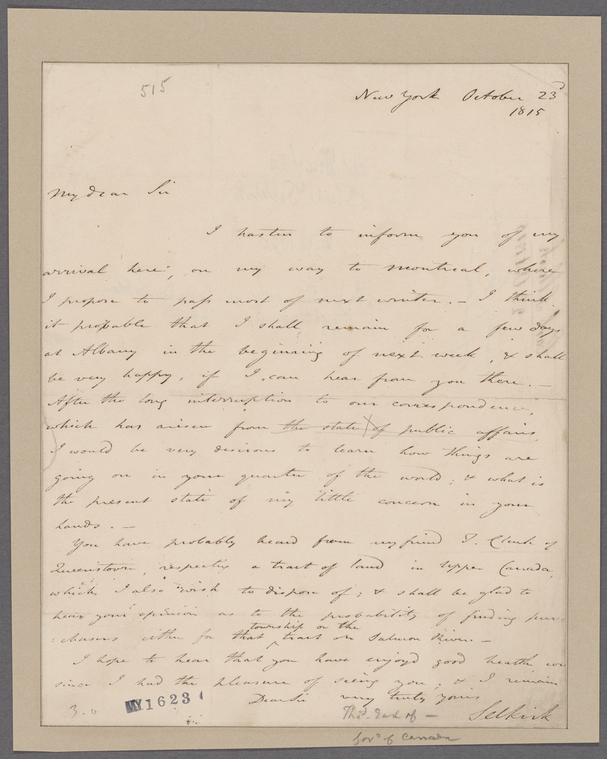 515
New York October 23d
1815
My dear Sir
I hasten to inform you of my
arrival here, on my way to Montreal, where
I propose to pass most of next winter. — I think
it probable that I shall remain for a few days
at Albany in the beginning of next week, & shall
be very happy, if I can hear from you there. —
After the long interruption to our correspondence,
which has arisen from the state of public affairs,
I would be very desirous to learn how things are
going on in your quarter of the world; & what is
the present state of my little concern in your
hands. —
You have probably heard from my friend T. Clark of
Queenstown, respectg a tract of land in Upper Canada,
which I also wish to dispose of; & shall be glad to
hear your opinion as to the probability of finding pur-
township or the
chasers either for that tract on Salmon River —
I hope to hear that you have enjoyd good health
since I had the pleasure of seeing you; & I remain
Dear Sir very truly yours
Selkirk
MY 1623
Earl of —
Govr of Canada